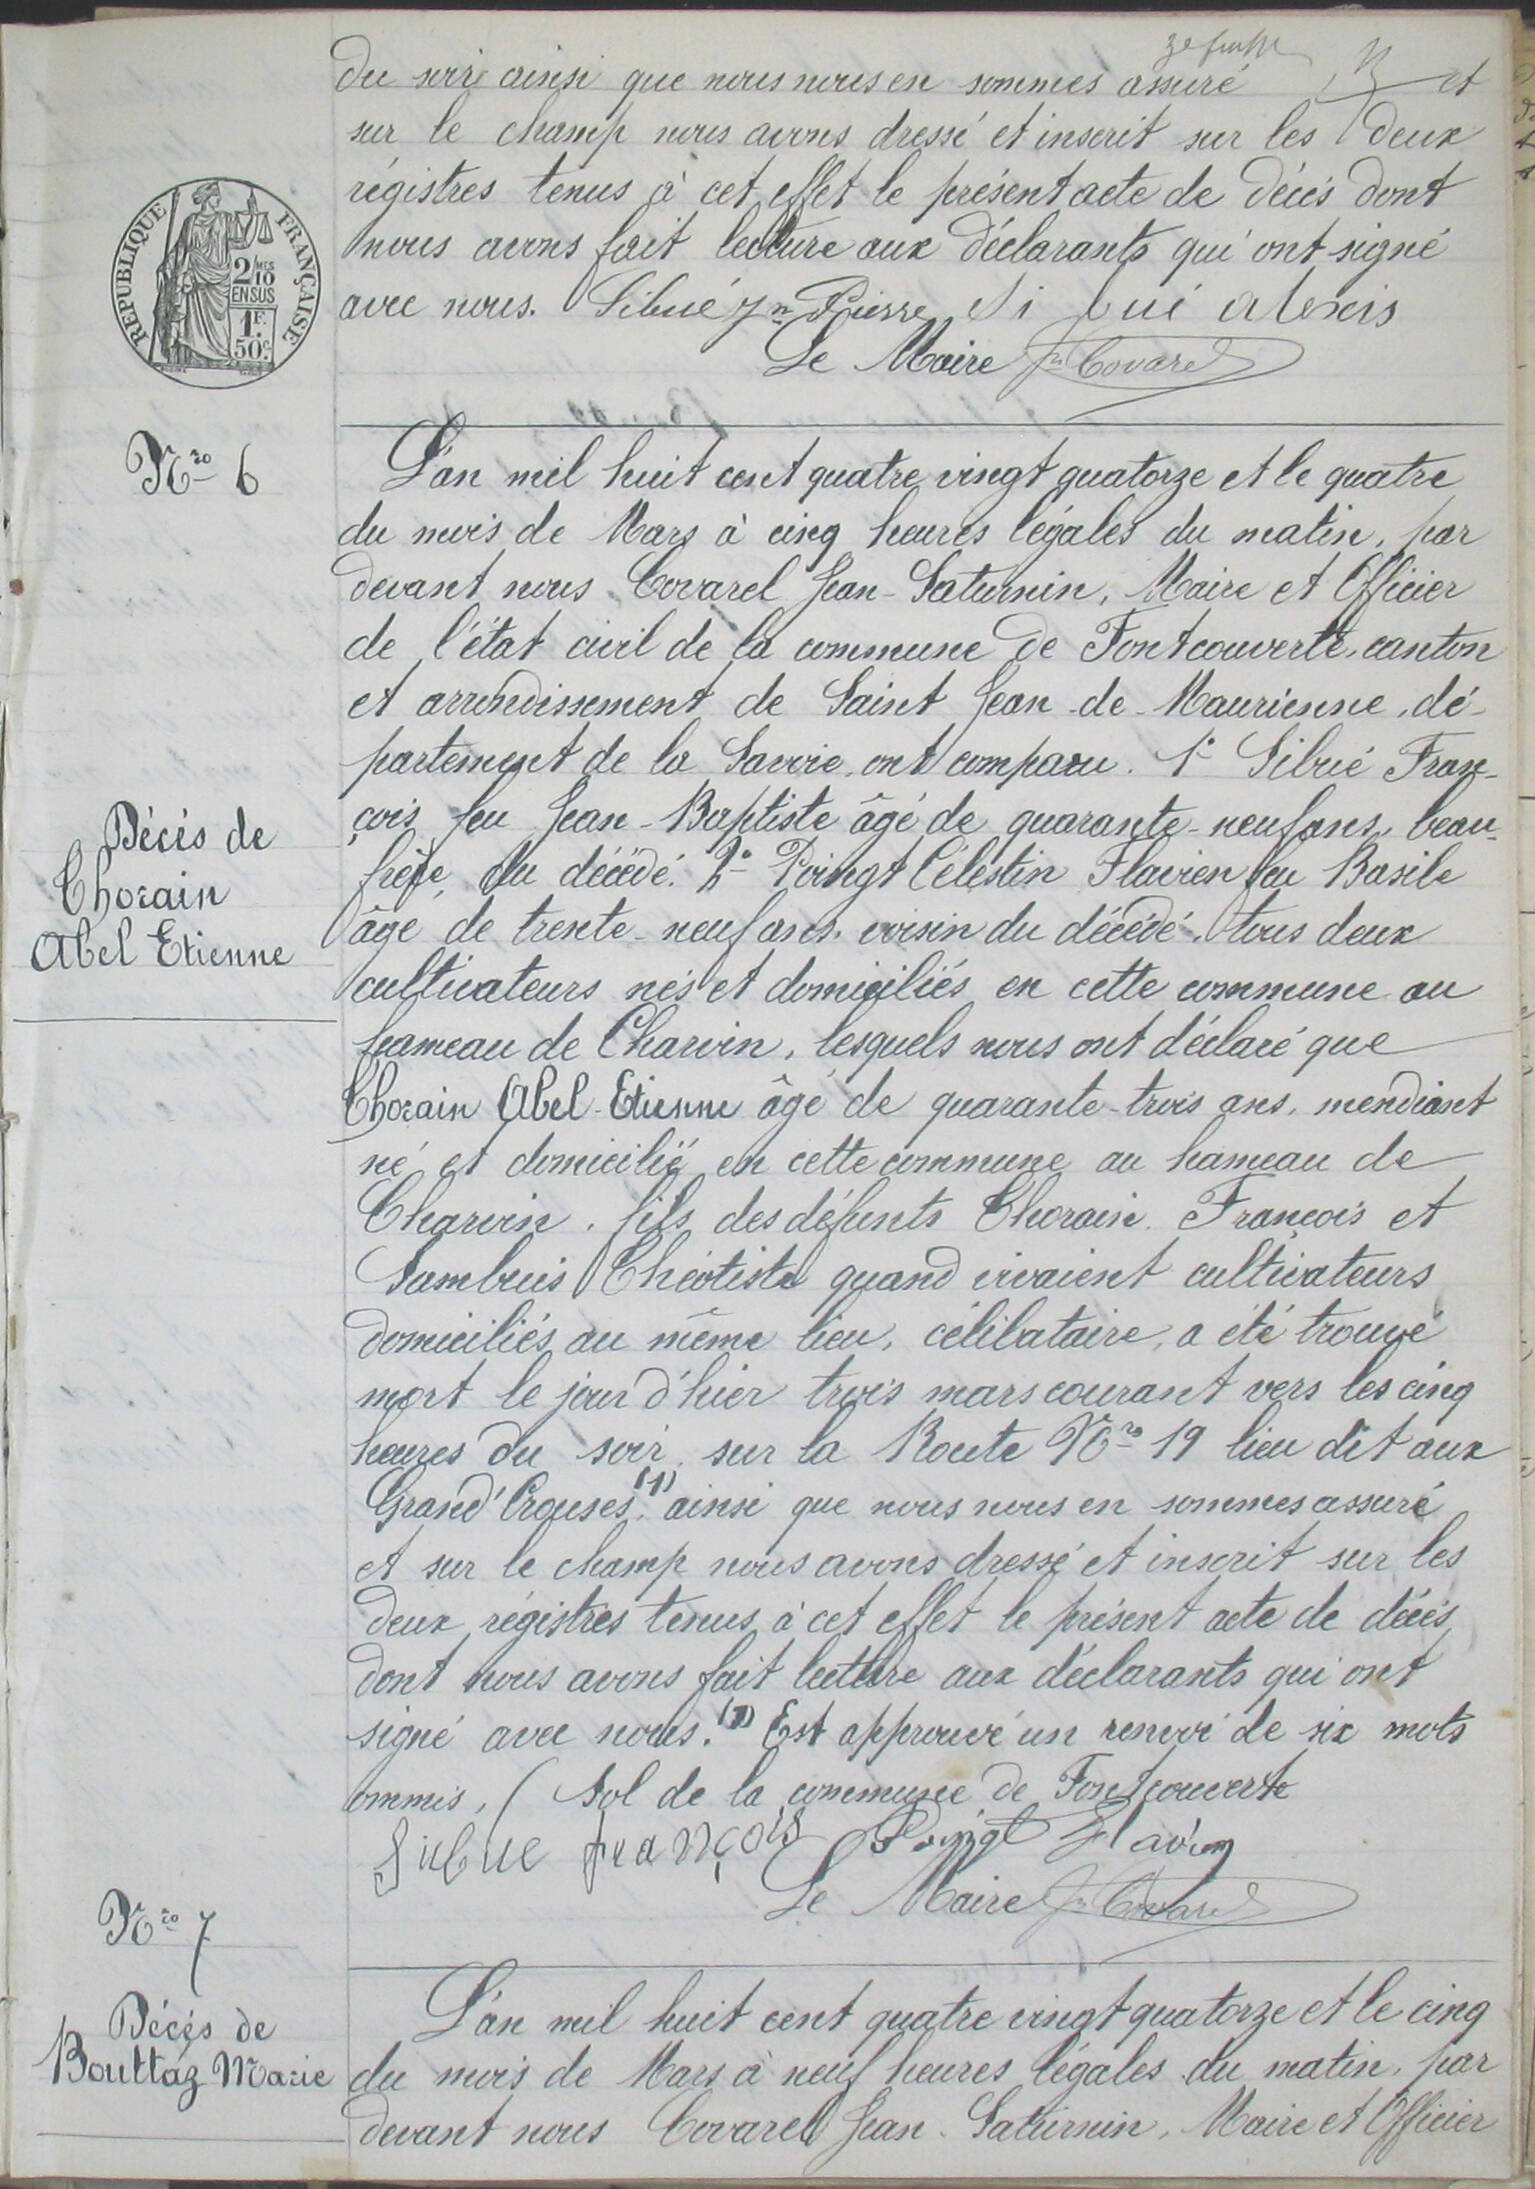 3e feuille
du soir ainsi que nous nous en sommes assuré et
sur le champ nous avons dressé et inscrit sur les deux
régistres tenus à cet effet le présent acte de décès dont
nous avons fait lecture aux déclarants qui ont signé
avec nous. Sibué Jn Pierre Si bué alexis
Le Maire Jn Covarel
REPUBLIQUE FRANÇAISE
2/10 MES
EN SUS
1F.
50c.
Nro 6
Décès de
Chorain
Abel Etienne
L'an mil huit cent quatre vingt quatorze et le quatre
du mois de Mars à cinq heures légales du matin, par
devant nous Covarel Jean-Saturnin, Maire et Officier
de l'état civil de la commune de Fontcouverte, canton
et arrondissement de Saint Jean-de-Maurienne, dé-
partement de la Savoie, ont comparu. 1° Sibué Fran-
çois feu Jean-Baptiste âgé de quarante-neuf ans, beau-
frère du décédé. 2° Poingt Célestin Flavien feu Basile
âgé de trente-neuf ans, voisin du décédé, tous deux
cultivateurs nés et domiciliés en cette commune au
hameau de Charvin, lesquels nous ont déclaré que
Chorain Abel-Etienne âgé de quarante-trois ans, mendiant
né et domicilié en cette commune au hameau de
Charvin, fils des défunts Chorain François et
Sambuis Théotiste quand vivaient cultivateurs
domiciliés au même lieu, célibataire, a été trouvé
mort le jour d'hier trois mars courant vers les cinq
heures du soir sur la Route Nro 19 lieu dit aux
Grand'Crouses (1) ainsi que nous nous en sommes assuré
et sur le champ nous avons dressé et inscrit sur les
deux régistres tenus à cet effet le présent acte de décès
dont nous avons fait lecture aux déclarants qui ont
signé avec nous. (1) Est approuvé un renvoi de six mots
ommis, ( Sol de la commune de Fontcouverte
Sibue françois Poingt Flavien
Le Maire Jn Covarel
Nro 7
Décès de
Bouttaz Marie
L'an mil huit cent quatre vingt quatorze et le cinq
du mois de Mars à neuf heures légales du matin, par
devant nous Covarel Jean-Saturnin, Maire et Officier